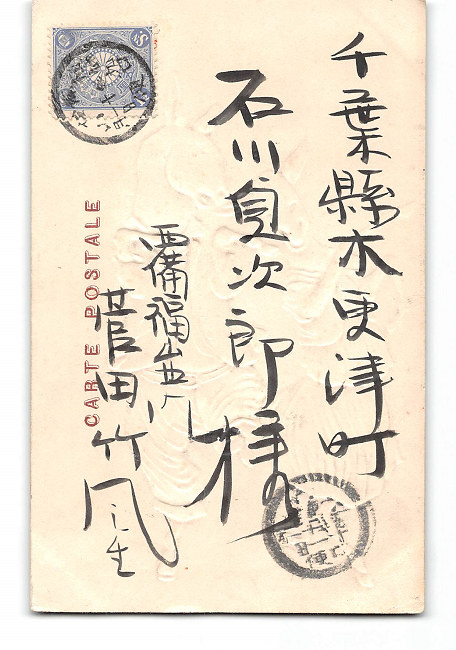 千葉縣木更津町
石川貞次郎様
西備福山
菅田竹風生
CARTE POSTALE